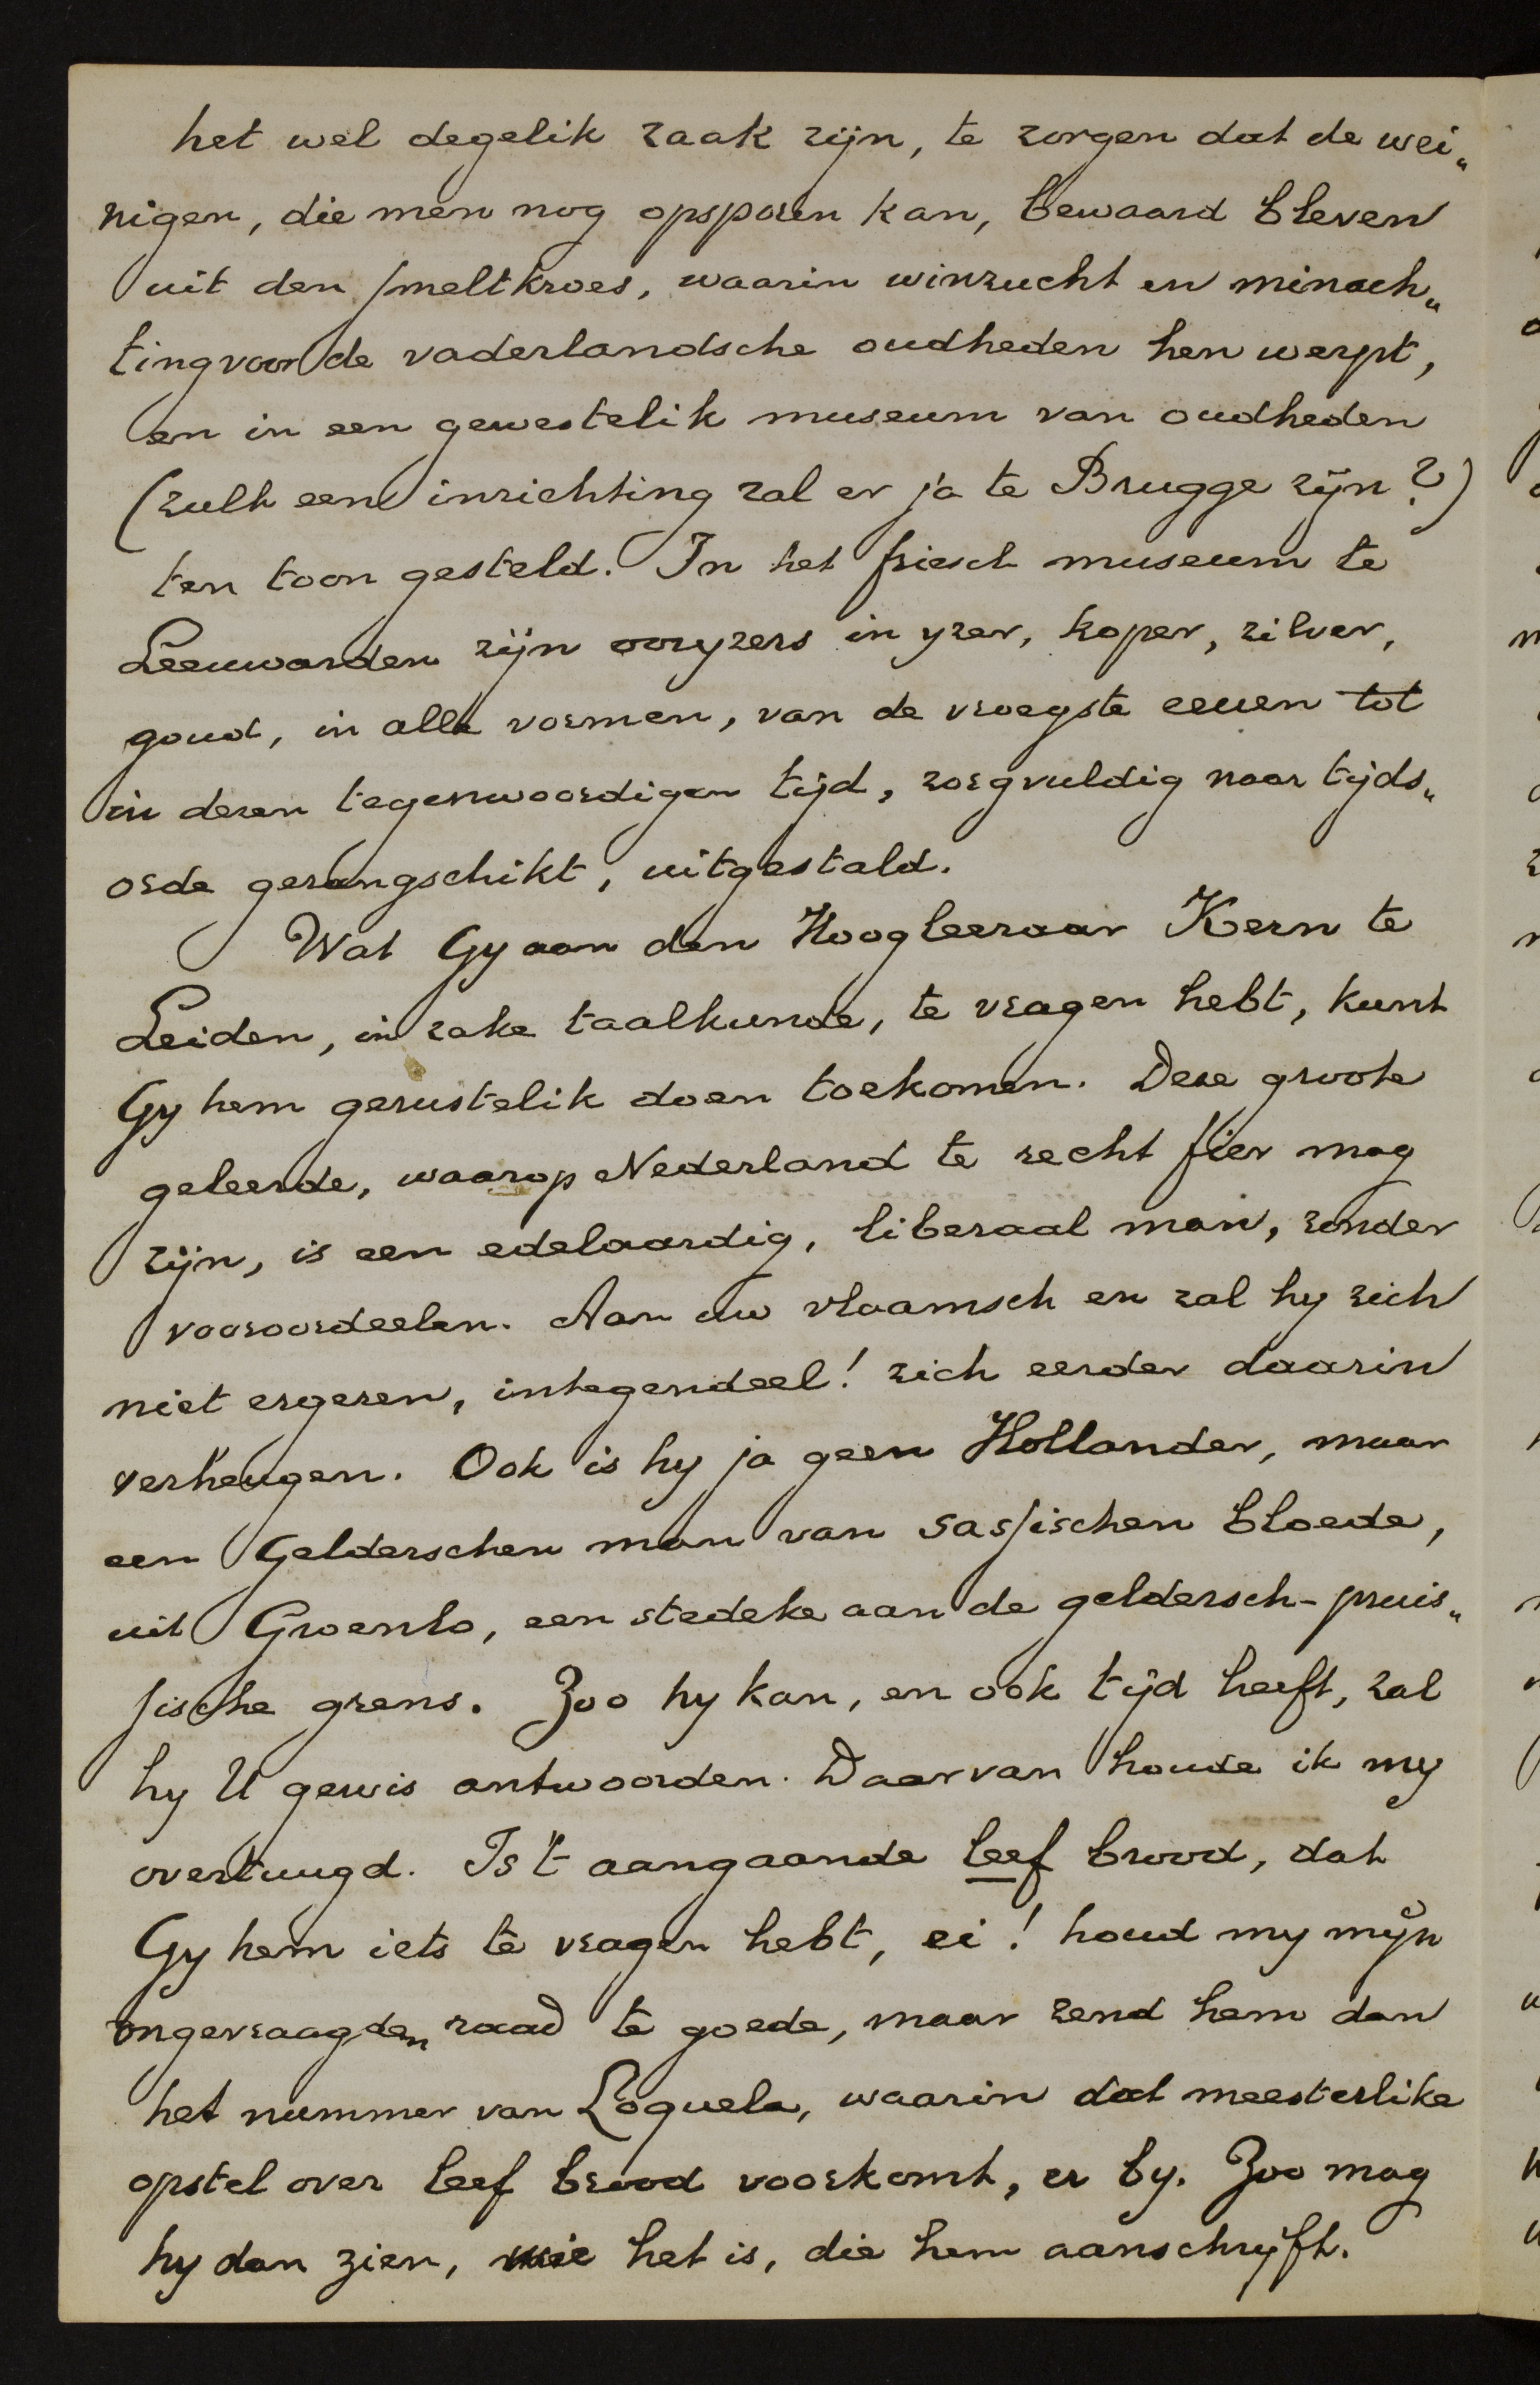 het wel degelik zaak zijn, te zorgen dat de wei„
nigen, die men nog opsporen kan, bewaard bleven
uit den smeltkroes, waarin winzucht en minach„
ting voor de vaderlandsche oudheden hen werpt,
en in een gewestelik museum van oudheden
(zulk eene inrichting zal er ja te Brugge zijn?)
ten toon gesteld. In het friesch museum te
Leeuwarden zijn ooryzers in yzer, koper, zilver,
goud, in alle vormen, van de vroegste eeuen tot
in dezen tegenwoordigen tijd, zorgvuldig naar tijds„
orde gerangschikt, uitgestald.
Wat Gy aan den Hoogleeraar Kern te
Leiden, in zake taalkunde, te vragen hebt, kunt
Gy hem gerustelik doen toekomen. Deze groote
geleerde, waarop Nederland te recht fier mag
zijn, is een edelaardig, liberaal man, zonder
vooroordeelen. Aan uw vlaamsch en zal hy zich
niet ergeren, integendeel! zich eerder daarin
verheugen. Ook is hy ja geen Hollander, maar
een Gelderschen man van sassischen bloede,
uit Groenlo, een stedeke aan de geldersch-pruis„
sische grens. Zoo hy kan, en ook tijd heeft, zal
hy U gewis antwoorden. Daarvan houde ik my
overtuugd. Is 't aangaande leef brood, dat
Gy hem iets te vragen hebt, ei! houd my mijn
ongevraagden raad te goede, maar zend hem dan
het nummer van Loquela, waarin dat meesterlike
opstel over leef brood voorkomt, er by. Zoo mag
hy dan zien, wie het is, die hem aanschrijft.